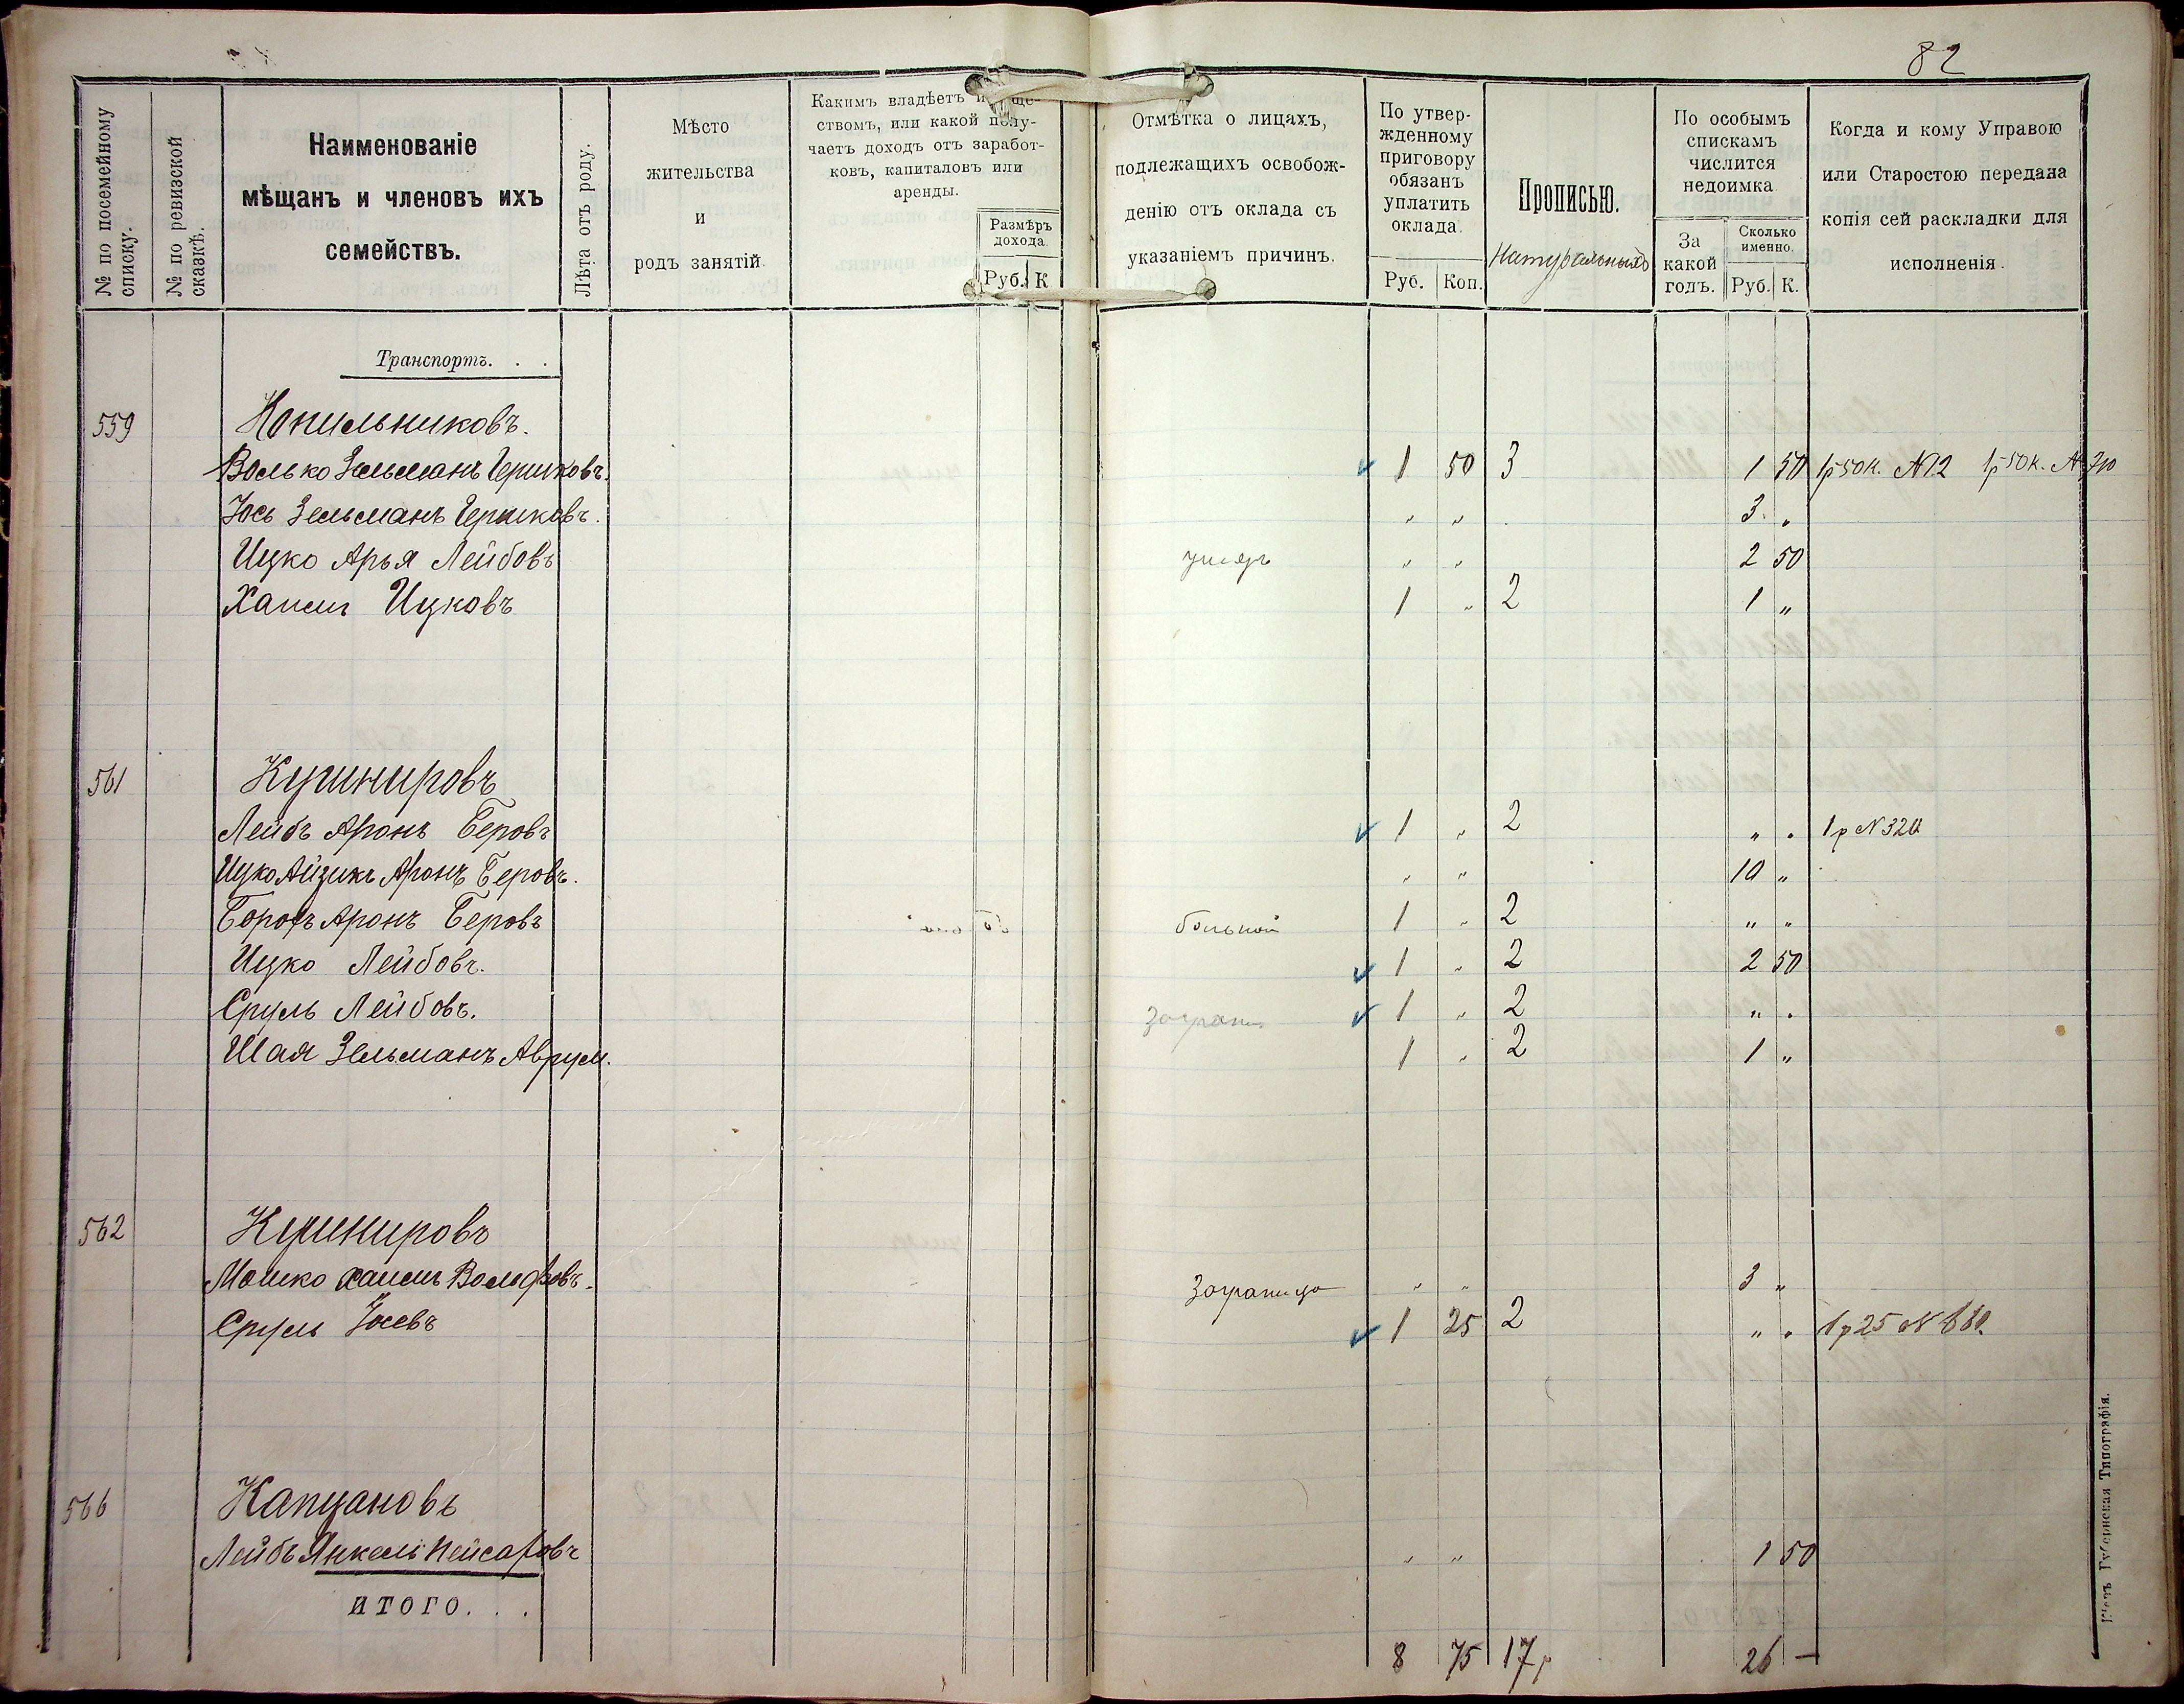 82
№ по посемейному списку.
№ по ревизской сказкѣ.
Наименованіе
мѣщанъ и членовъ ихъ
семействъ.
Лѣта отъ роду.
Мѣсто
жительства
и
родъ занятій.
Какимъ владѣетъ
ствомъ, или какой полу-
чаетъ доходъ отъ заработ-
ковъ, капиталовъ или
аренды.
Размѣръ
дохода.
Руб. К
Отмѣтка о лицахъ,
подлежащихъ освобож-
денію отъ оклада съ
указаніемъ причинъ.
По утвер-
жденному
приговору
обязанъ
уплатить
оклада.
Руб. Коп.
Прописью.
Натуральныхъ
По особымъ
спискамъ
числится
недоимка.
За
какой
годъ.
Сколько
именно.
Руб. К.
Когда и кому Управою
или Старостою передана
копія сей раскладки для
исполненія.
Транспортъ. . .
559 Копильниковъ.
Волько Зельманъ Гершковъ. 1 50 3 1 50 1р 50к. №12 1р 50к. № 710
Іось Зельманъ Гершковъ. " " 3 "
Ицко Арья Лейбовъ " " 2 50
Хаимъ Ицковъ 1 " 2 1 "
561 Кушнировъ
Лейбъ Аронъ Беровъ 1 " 2 " " 1р №320
Ицко Айзикъ Аронъ Беровъ. " " 10 "
Борохъ Аронъ Беровъ больной 1 " 2 " "
Ицко Лейбовъ. 1 " 2 2 50
Сруль Лейбовъ. заграниц 1 " 2 " "
Шая Зельманъ Аврум. 1 " 2 1 "
562 Кушнировъ
Мошко Хаимъ Вольфовъ. Заграницо " " 3 "
Сруль Іосевъ 1 25 2 " " 1р 25 №
566 Капцановъ
Лейбъ Янкель Пейсаховъ " " 1 50
ИТОГО. . .
8 75 17р 26 —
Кіевъ Губернская Типографія.